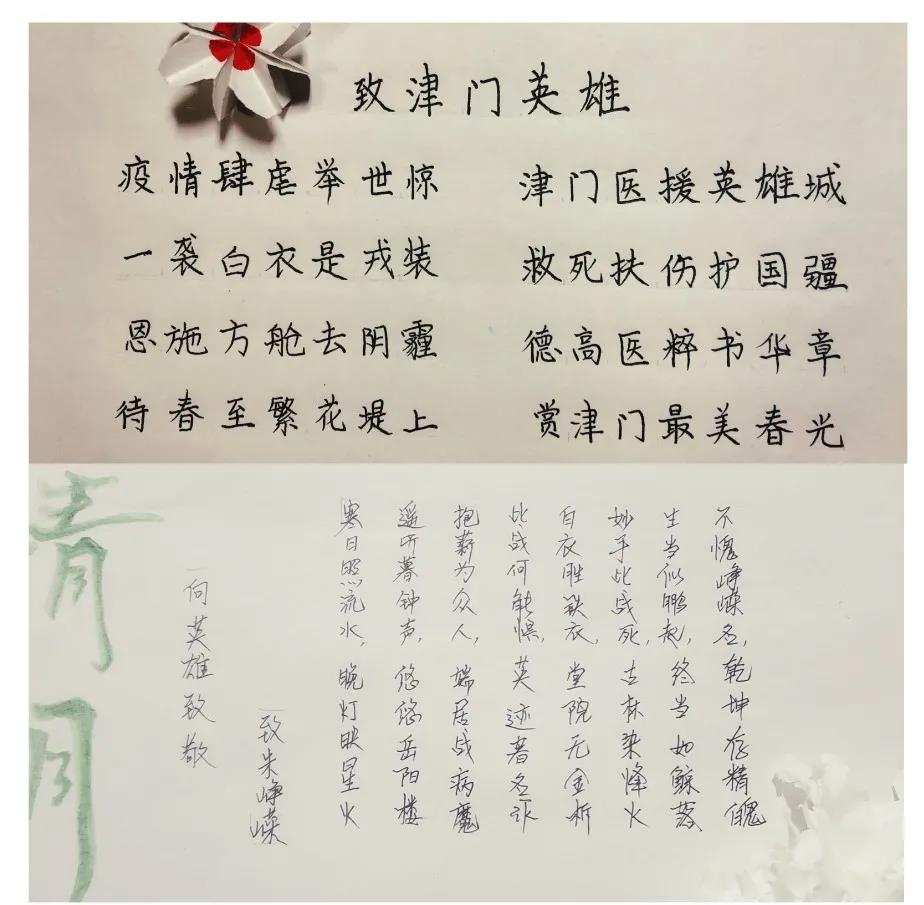 致津门英雄
疫情肆虐举世惊 津门医援英雄城
一袭白衣是戎装 救死扶伤护国疆
恩施方舱去阴霾 德高医粹书华章
待春至繁花堤上 赏津门最美春光
清明
向英雄致敬
致朱峥嵘
寒日照流水，晚灯映星火
遥听暮钟声，悠悠岳阳楼
抱薪为众人，端居战病魔
此战何能惧，英迹著名
白衣胜铁衣，堂院无金柝
妙手此战死，吉林染烽火
生当似鹏起，终当如鲸落
不愧峥嵘名，乾坤存精魄